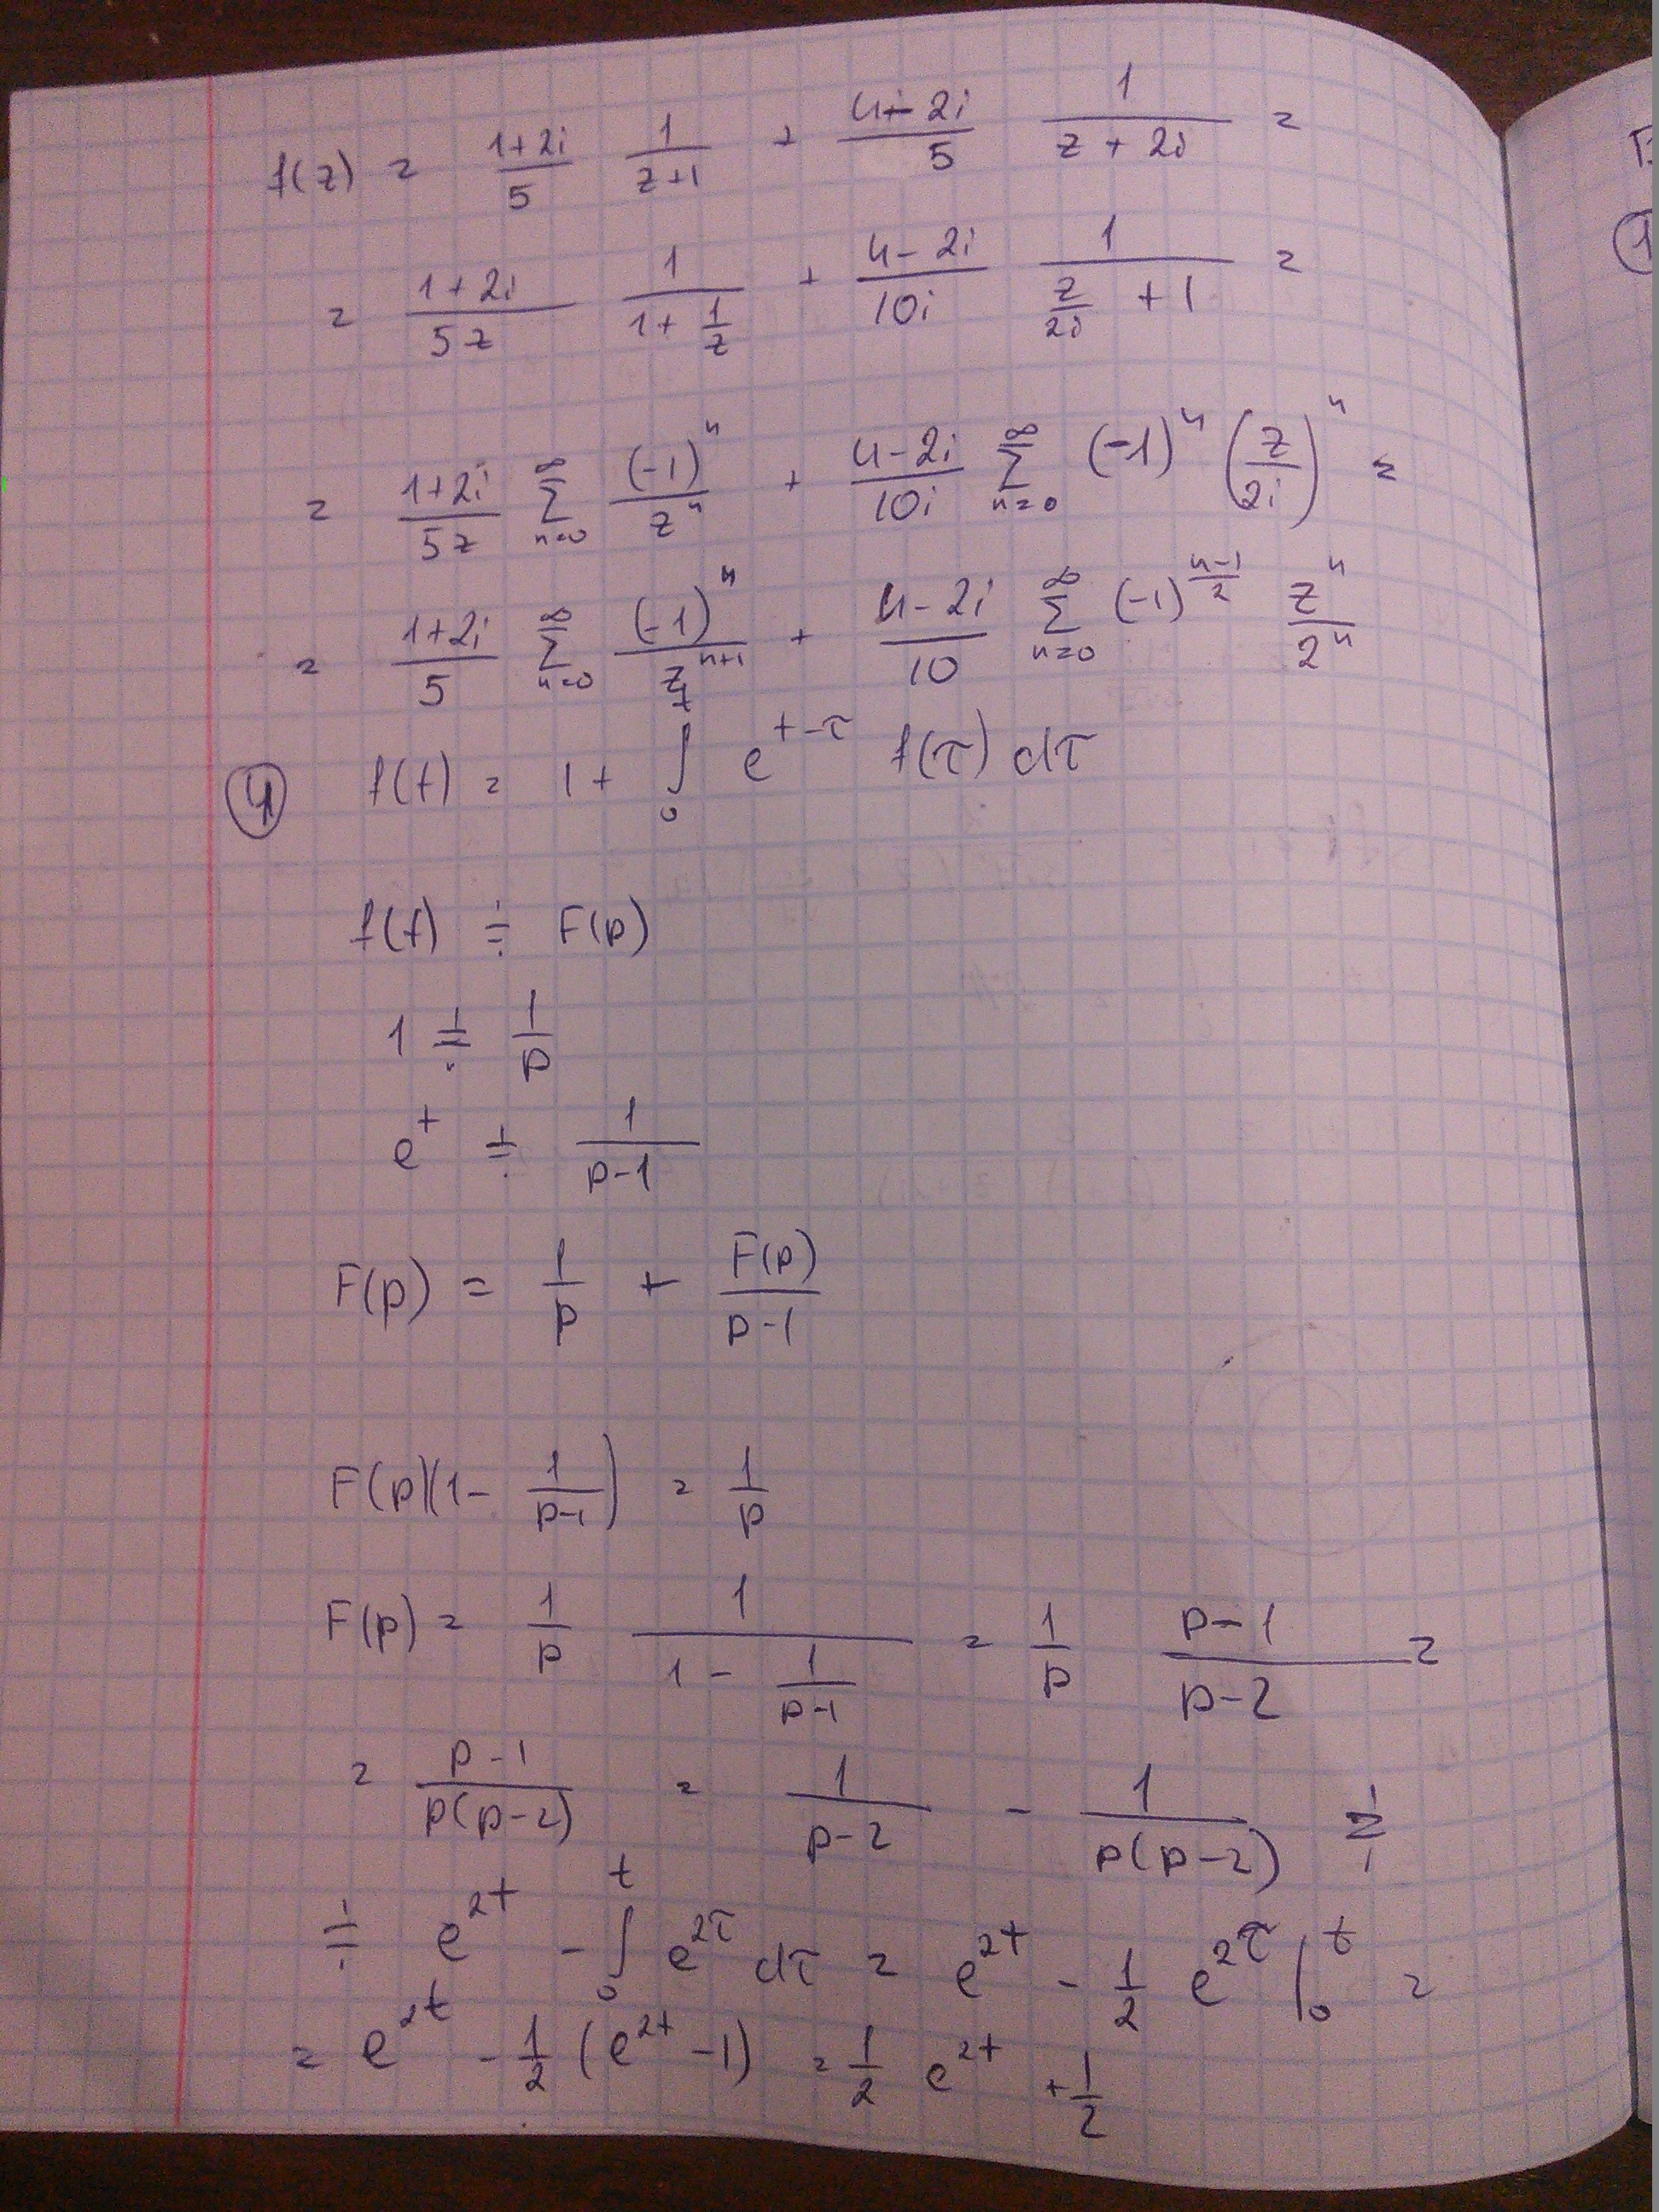 f(z) = \frac{1+2i}{5} \frac{1}{z+1} + \frac{4-2i}{5} \frac{1}{z+2i} =
= \frac{1+2i}{5z} \frac{1}{1+\frac{1}{z}} + \frac{4-2i}{10i} \frac{1}{\frac{z}{2i}+1} =
= \frac{1+2i}{5z} \sum_{n=0}^{\infty} \frac{(-1)^n}{z^n} + \frac{4-2i}{10i} \sum_{n=0}^{\infty} (-1)^n \left(\frac{z}{2i}\right)^n =
= \frac{1+2i}{5} \sum_{n=0}^{\infty} \frac{(-1)^n}{z^{n+1}} + \frac{4-2i}{10} \sum_{n=0}^{\infty} (-1)^{\frac{n-1}{2}} \frac{z^n}{2^n}
④ f(t) = 1 + \int_0^t e^{t-τ} f(τ) dτ
f(t) ≑ F(p)
1 ≑ \frac{1}{p}
e^t ≑ \frac{1}{p-1}
F(p) = \frac{1}{p} + \frac{F(p)}{p-1}
F(p)(1 - \frac{1}{p-1}) = \frac{1}{p}
F(p) = \frac{1}{p} \frac{1}{1-\frac{1}{p-1}} = \frac{1}{p} \frac{p-1}{p-2} =
= \frac{p-1}{p(p-2)} = \frac{1}{p-2} - \frac{1}{p(p-2)} ≑
≑ e^{2t} - \int_0^t e^{2τ} dτ = e^{2t} - \frac{1}{2} e^{2τ} |_0^t =
= e^{2t} - \frac{1}{2} (e^{2t} - 1) = \frac{1}{2} e^{2t} + \frac{1}{2}